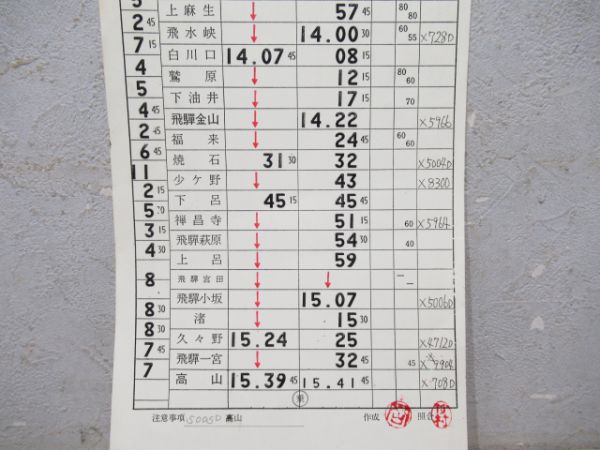 5 上麻生 ↓ 57 45 80 80
2 45 飛水峡 ↓ 14.00 30 60 55 ×728D
7 15 白川口 14.07 45 08 15
4 鷲原 ↓ 12 15 80 60
5 下油井 ↓ 17 15 70
4 45 飛驒金山 ↓ 14.22 ×5966
2 45 福来 ↓ 24 45 60 60
6 45 焼石 31 30 32 ×5004D
11 少ケ野 ↓ 43 ×8300
2 15 下呂 45 15 45 45
5 30 禅昌寺 ↓ 51 15 60 ×5964
3 15 飛驒萩原 ↓ 54 30 40
4 30 上呂 ↓ 59
飛驒宮田 ↓ ↓ — —
8 飛驒小坂 ↓ 15.07 ×5006D
8 30 渚 ↓ 15 30
8 30 久々野 15.24 25 ×4712D
7 45 飛驒一宮 ↓ 32 45 45
7 高山 15.39 45 15.41 45 ×708D
乗
注意事項 5005D 高山 作成 照合